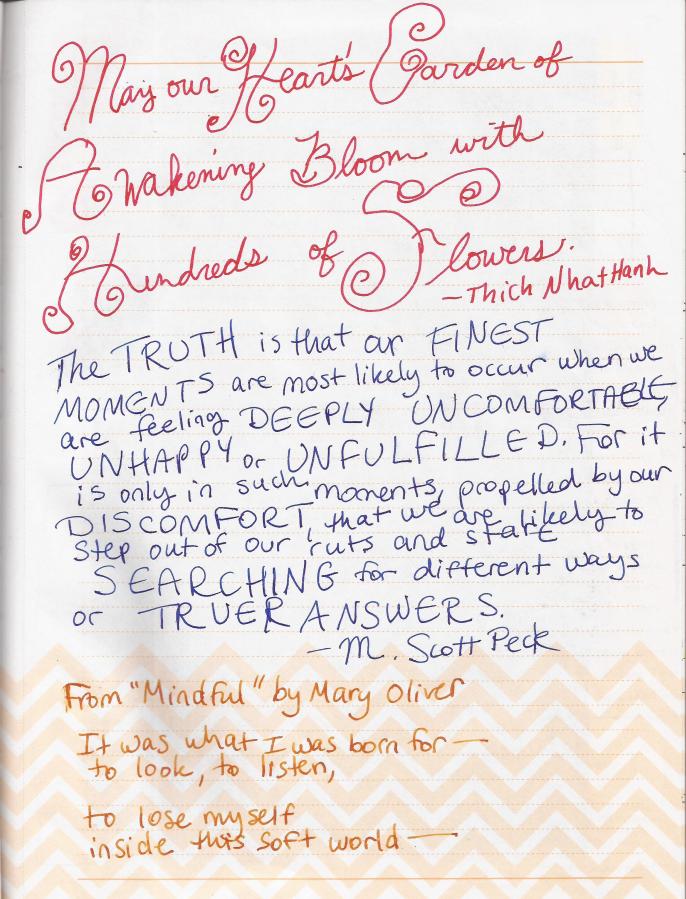 May our Heart's Garden of
Awakening Bloom with
Hundreds of Flowers.
—Thich Nhat Hanh
The TRUTH is that our FINEST
MOMENTS are most likely to occur when we
are feeling DEEPLY UNCOMFORTABLE,
UNHAPPY or UNFULFILLED. For it
is only in such moments, propelled by our
DISCOMFORT, that we are likely to
step out of our ruts and start
SEARCHING for different ways
or TRUER ANSWERS.
—M. Scott Peck
From "Mindful" by Mary Oliver
It was what I was born for —
to look, to listen,
to lose myself
inside this soft world —